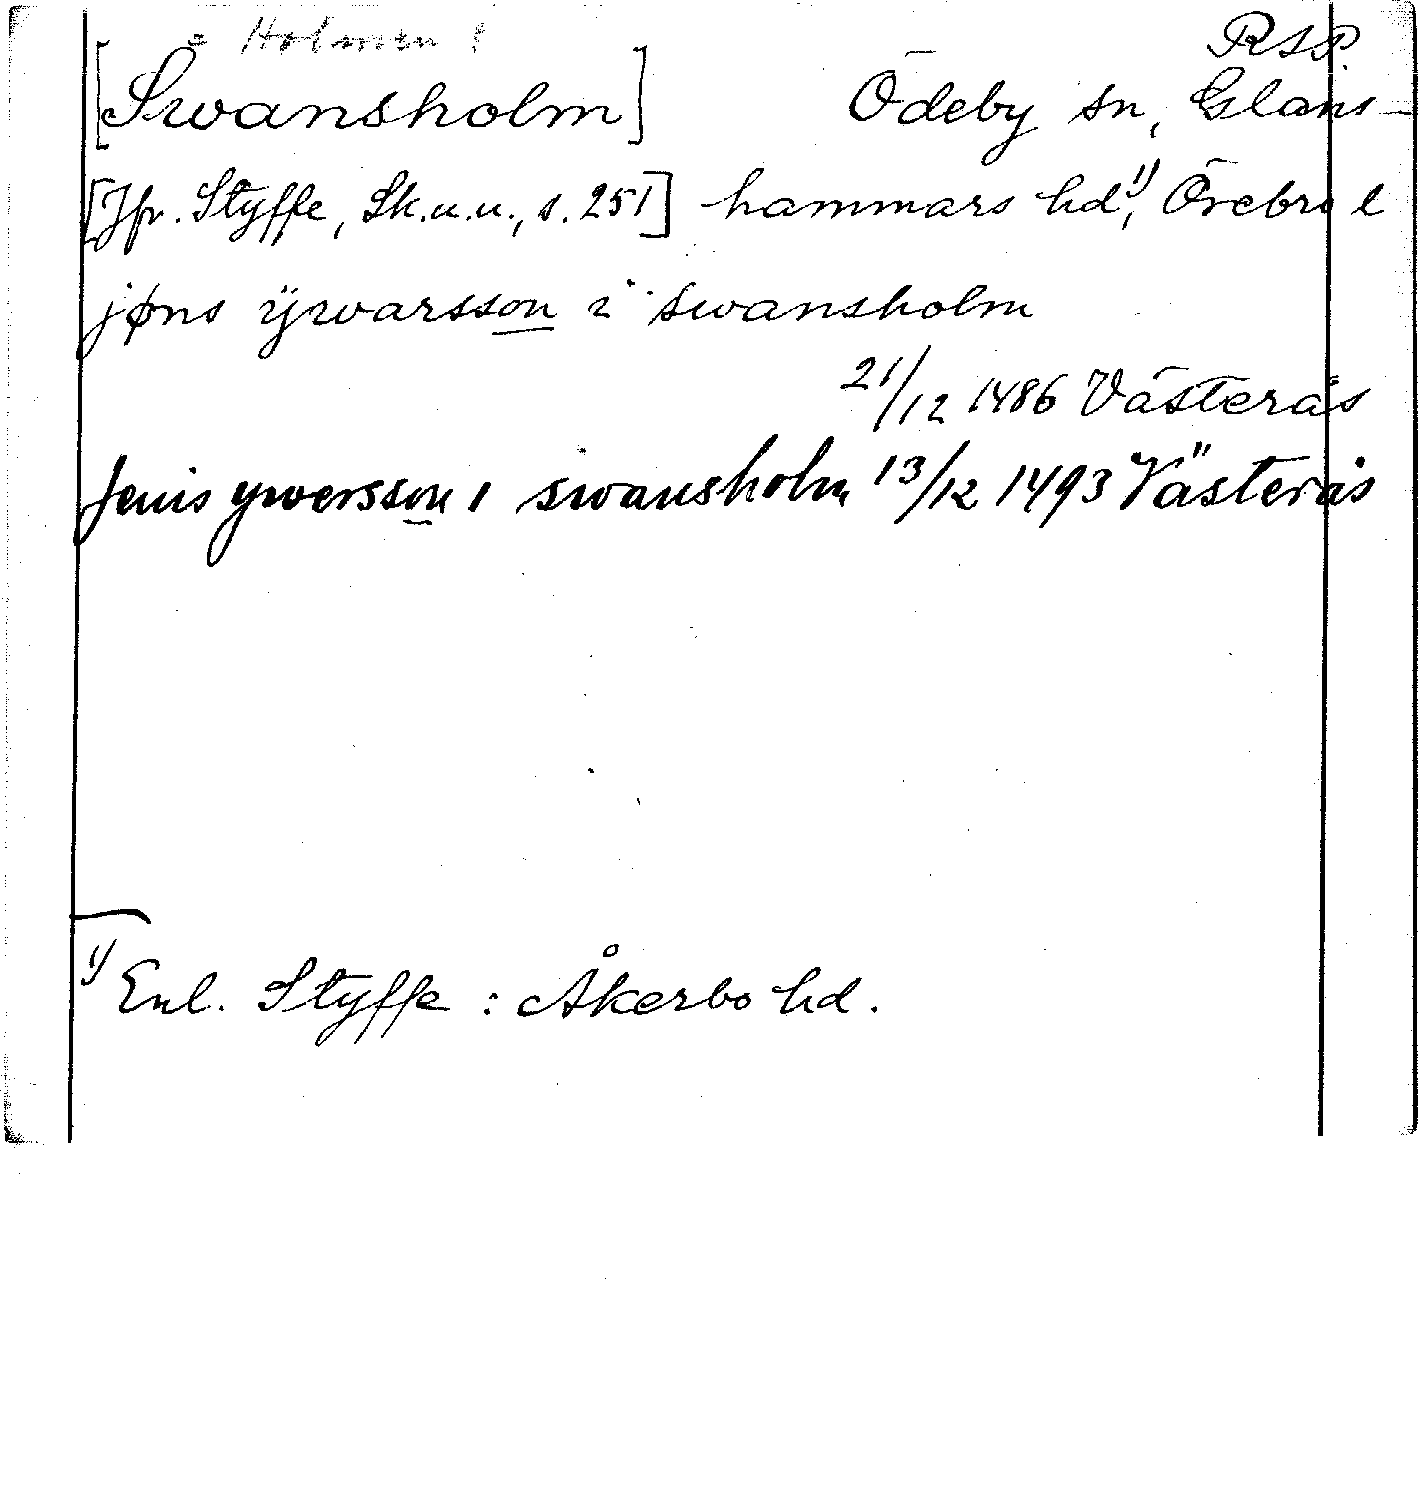 = Holmen !
RSP.
[Swansholm] Ödeby sn, Glans-
[Jfr. Styffe, Sk.u.u., s. 251] hammars hd¹⁾, Örebro l
jøns ÿwarsson i swansholm
21/12 1486 Västerås
Jenis ywersson i swansholm 13/12 1493 Västerås
¹⁾ Enl. Styffe : Åkerbo hd.